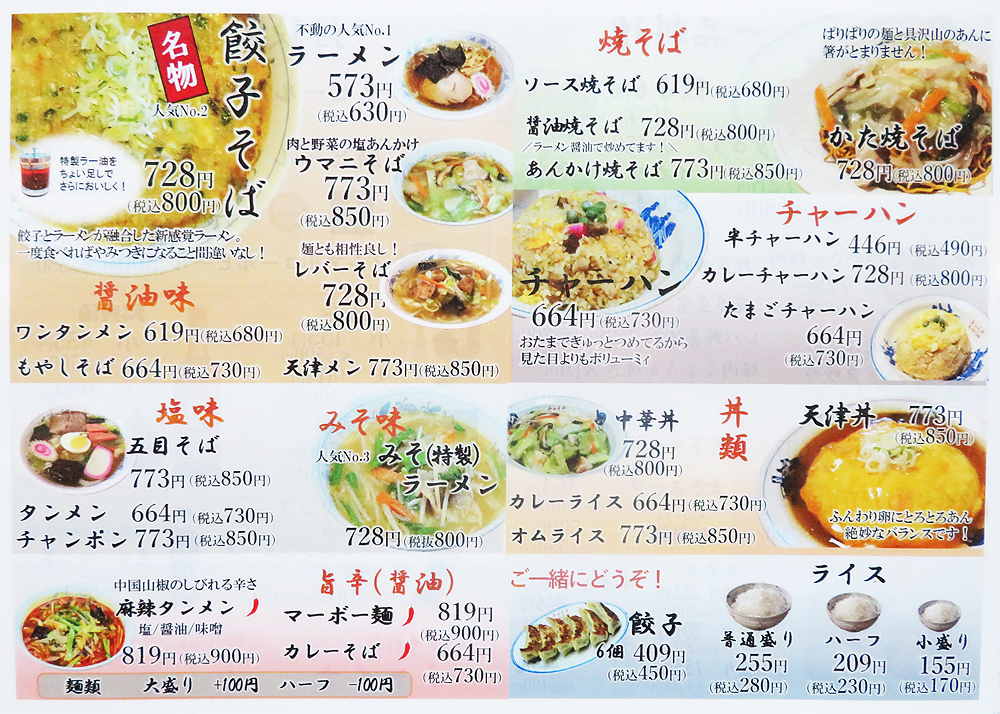 名物
餃子そば
人気No.2
特製ラー油を
ちょい足しで
さらにおいしく！
728円
(税込800円)
餃子とラーメンが融合した新感覚ラーメン。
一度食べればやみつきになること間違いなし！
不動の人気No.1
ラーメン
573円
(税込630円)
肉と野菜の塩あんかけ
ウマニそば
773円
(税込850円)
麺とも相性良し！
レバーそば
728円
(税込800円)
醤油味
ワンタンメン 619円(税込680円)
もやしそば 664円(税込730円)
天津メン 773円(税込850円)
焼そば
ソース焼そば 619円(税込680円)
醤油焼そば 728円(税込800円)
／ラーメン醤油で炒めてます！＼
あんかけ焼そば 773円(税込850円)
ぱりぱりの麺と具沢山のあんに
箸がとまりません！
かた焼そば
728円(税込800円)
チャーハン
664円(税込730円)
おたまでぎゅっとつめてるから
見た目よりもボリューミィ
チャーハン
半チャーハン 446円(税込490円)
カレーチャーハン 728円(税込800円)
たまごチャーハン
664円
(税込730円)
塩味
五目そば
773円(税込850円)
タンメン 664円(税込730円)
チャンポン 773円(税込850円)
みそ味
人気No.3 みそ(特製)
ラーメン
728円(税抜800円)
中華丼
728円
(税込800円)
丼類
カレーライス 664円(税込730円)
オムライス 773円(税込850円)
天津丼 773円
(税込850円)
ふんわり卵にとろとろあん
絶妙なバランスです！
中国山椒のしびれる辛さ
麻辣タンメン
塩/醤油/味噌
819円(税込900円)
旨辛(醤油)
マーボー麺 819円
(税込900円)
カレーそば 664円
(税込730円)
麺類 大盛り +100円 ハーフ -100円
ご一緒にどうぞ！
餃子
6個 409円
(税込450円)
ライス
普通盛り
255円
(税込280円)
ハーフ
209円
(税込230円)
小盛り
155円
(税込170円)